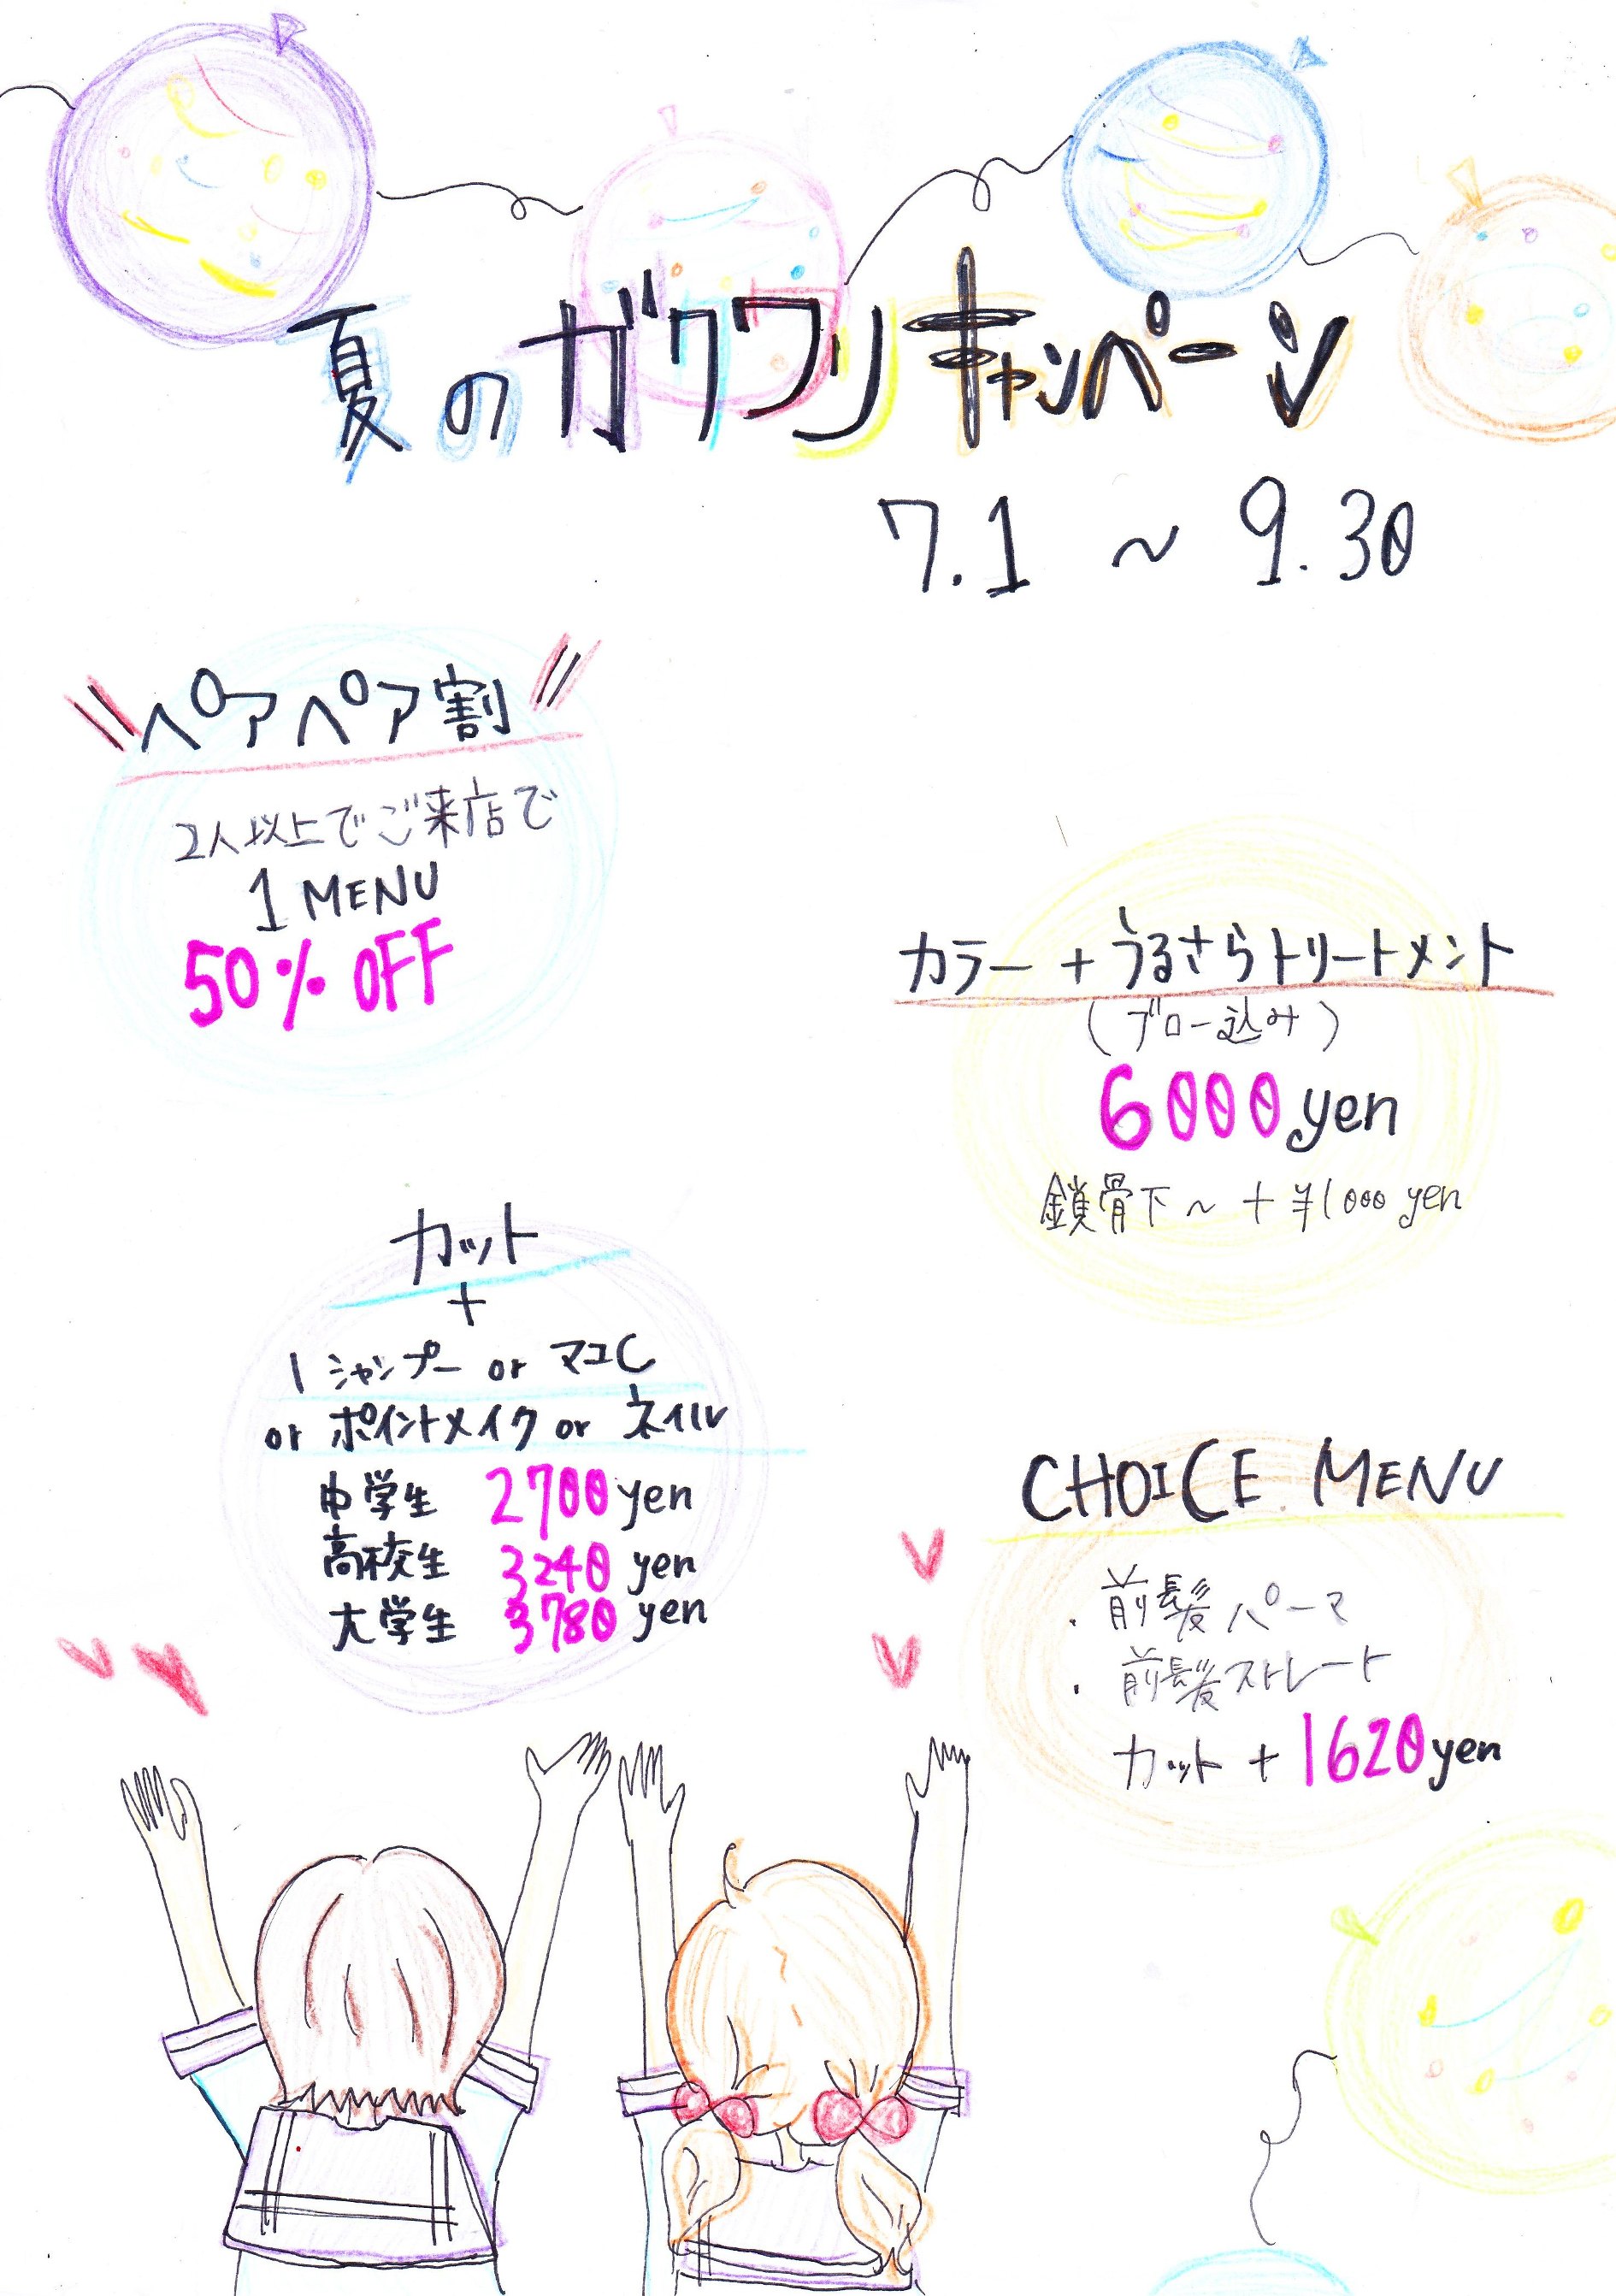 夏のガクワリキャンペーン
7.1 ~ 9.30
ペアペア割
2人以上でご来店で
1 MENU
50% OFF
カラー + うるさらトリートメント
(ブロー込み)
6000yen
鎖骨下~ + ¥1000 yen
カット
+
1シャンプー or マユC
or ポイントメイク or ネイル
中学生 2700yen
高校生 3240 yen
大学生 3780 yen
CHOICE MENU
・前髪パーマ
・前髪ストレート
カット + 1620yen